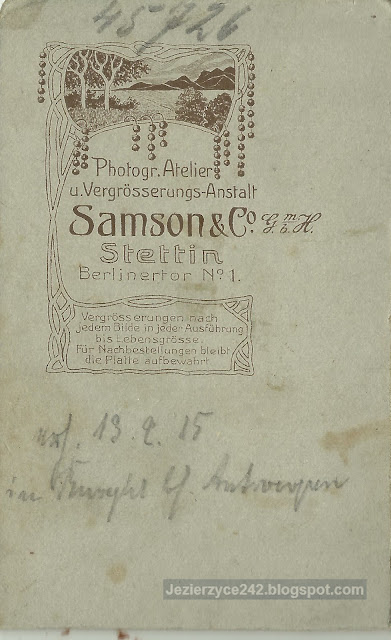 45726
Photogr. Atelier
u. Vergrösserungs-Anstalt
Samson & Co. G.m.b.H.
Stettin
Berlinertor No 1.
Vergrösserungen nach
jedem Bilde in jeder Ausführung
bis Lebensgrösse.
Für Nachbestellungen bleibt
die Platte aufbewahrt.
13. 2. 15
in bf. Antwerpen
Jezierzyce242.blogspot.com